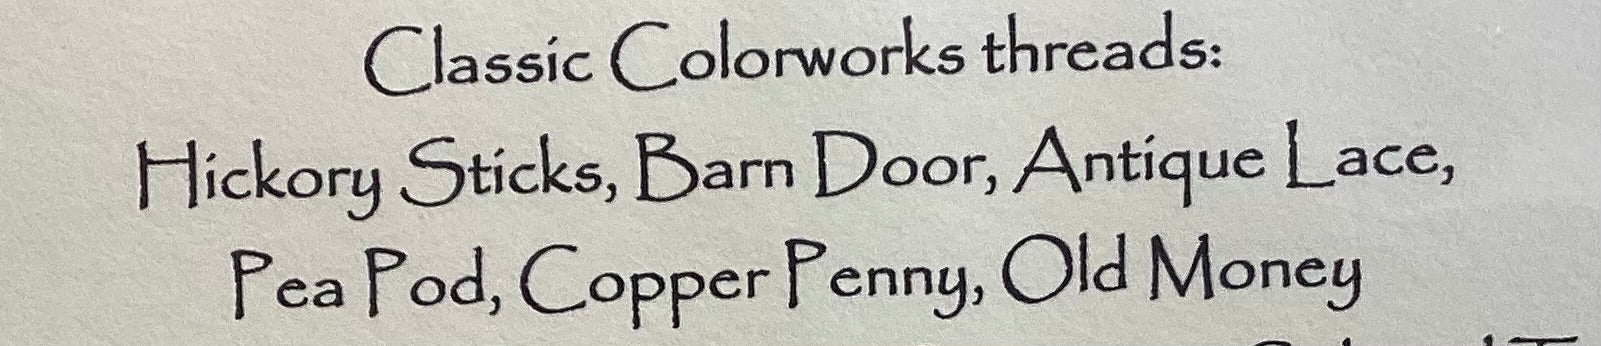 Classic Colorworks threads:
Hickory Sticks, Barn Door, Antique Lace,
Pea Pod, Copper Penny, Old Money